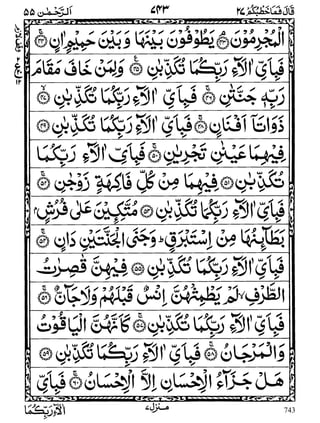 قَالَ فَمَا خَطْبُكُمْ ٢٧ ٧٤٣ اَلرَّحْمٰن ٥٥
الْمُجْرِمُوْنَ ﴿۴۳﴾ يَطُوْفُوْنَ بَيْنَهَا وَ بَيْنَ حَمِيْمٍ اٰنٍ ﴿۴۴﴾
فَبِاَيِّ اٰلَآءِ رَبِّكُمَا تُكَذِّبٰنِ ﴿۴۵﴾ وَلِمَنْ خَافَ مَقَامَ
رَبِّهٖ جَنَّتٰنِ ﴿۴۶﴾ فَبِاَيِّ اٰلَآءِ رَبِّكُمَا تُكَذِّبٰنِ ﴿۴۷﴾
ذَوَاتَاۤ اَفْنَانٍ ﴿۴۸﴾ فَبِاَيِّ اٰلَآءِ رَبِّكُمَا تُكَذِّبٰنِ ﴿۴۹﴾
فِيْهِمَا عَيْنٰنِ تَجْرِيٰنِ ﴿۵۰﴾ فَبِاَيِّ اٰلَآءِ رَبِّكُمَا
تُكَذِّبٰنِ ﴿۵۱﴾ فِيْهِمَا مِنْ كُلِّ فَاكِهَةٍ زَوْجٰنِ ﴿۵۲﴾
فَبِاَيِّ اٰلَآءِ رَبِّكُمَا تُكَذِّبٰنِ ﴿۵۳﴾ مُتَّكِـِٕيْنَ عَلٰى فُرُشٍۭ
بَطَآئِنُهَا مِنْ اِسْتَبْرَقٍ ؕ وَجَنَا الْجَنَّتَيْنِ دَانٍ ﴿۵۴﴾
فَبِاَيِّ اٰلَآءِ رَبِّكُمَا تُكَذِّبٰنِ ﴿۵۵﴾ فِيْهِنَّ قٰصِرٰتُ
الطَّرْفِ ۙ لَمْ يَطْمِثْهُنَّ اِنْسٌ قَبْلَهُمْ وَلَا جَآنٌّ ﴿۵۶﴾
فَبِاَيِّ اٰلَآءِ رَبِّكُمَا تُكَذِّبٰنِ ﴿۵۷﴾ كَاَنَّهُنَّ الْيَاقُوْتُ
وَالْمَرْجَانُ ﴿۵۸﴾ فَبِاَيِّ اٰلَآءِ رَبِّكُمَا تُكَذِّبٰنِ ﴿۵۹﴾
هَلْ جَزَآءُ الْاِحْسَانِ اِلَّا الْاِحْسَانُ ﴿۶۰﴾ فَبِاَيِّ
اٰلَآءِ رَبِّكُمَا منزل ٧ 743